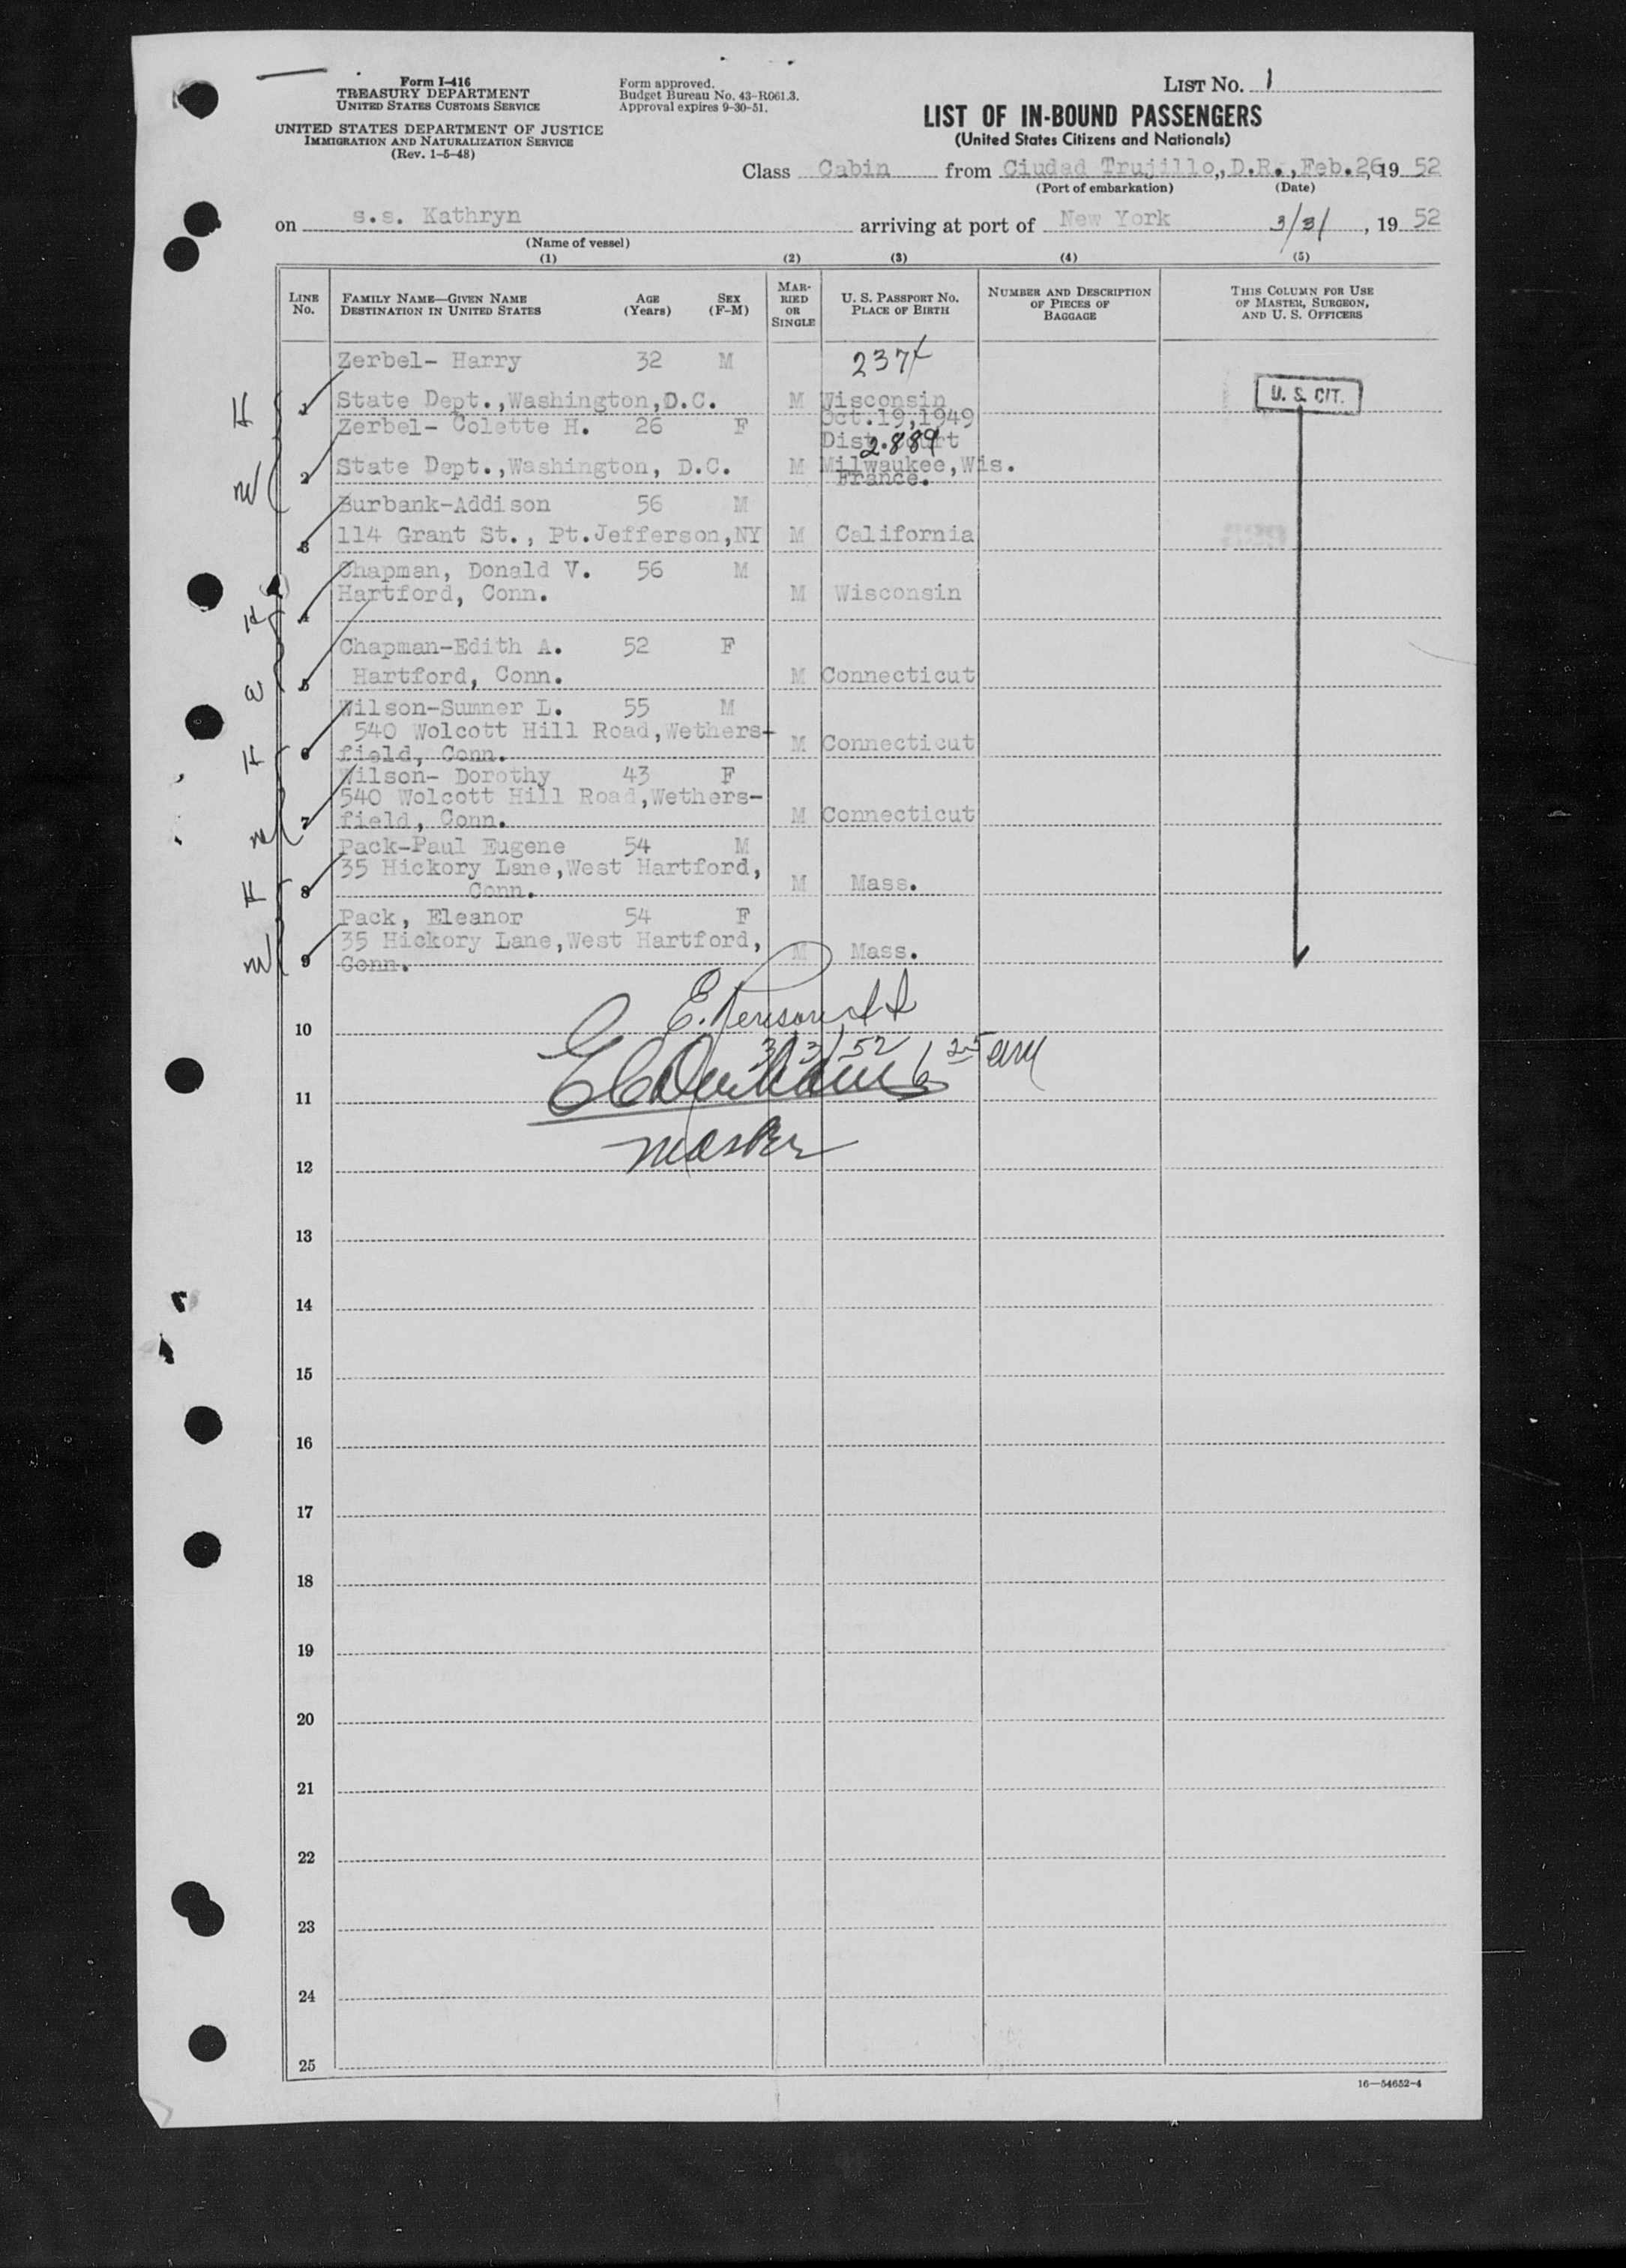 Form I-416
TREASURY DEPARTMENT
UNITED STATES CUSTOMS SERVICE
UNITED STATES DEPARTMENT OF JUSTICE
IMMIGRATION AND NATURALIZATION SERVICE
(Rev. 1-5-48)
Form approved.
Budget Bureau No. 43-R061.3.
Approval expires 9-30-51.
LIST NO. 1
LIST OF IN-BOUND PASSENGERS
(United States Citizens and Nationals)
Class Cabin from Ciudad Trujillo, D.R., Feb. 26, 19 52
(Port of embarkation) (Date)
on s.s. Kathryn arriving at port of New York 3/3/, 19 52
(Name of vessel)
(1) (2) (3) (4) (5)
LINE NO.
FAMILY NAME—GIVEN NAME DESTINATION IN UNITED STATES
AGE (Years)
SEX (F-M)
MARRIED OR SINGLE
U. S. PASSPORT NO. PLACE OF BIRTH
NUMBER AND DESCRIPTION OF PIECES OF BAGGAGE
THIS COLUMN FOR USE OF MASTER, SURGEON, AND U. S. OFFICERS
Zerbel- Harry 32 M
H 1 State Dept.,Washington,D.C. M Wisconsin U. S. CIT.
Oct.19,1949
Zerbel- Colette H. 26 F
Dist. Court 2889
W 2 State Dept.,Washington, D.C. M Milwaukee,Wis.
France.
Burbank-Addison 56 M
3 114 Grant St., Pt.Jefferson,NY M California
Chapman, Donald V. 56 M
Hartford, Conn. M Wisconsin
H 4
Chapman-Edith A. 52 F
W 5 Hartford, Conn. M Connecticut
Wilson-Sumner L. 55 M
540 Wolcott Hill Road,Wethers-
H 6 field, Conn. M Connecticut
Wilson- Dorothy 43 F
540 Wolcott Hill Road,Wethers-
W 7 field, Conn. M Connecticut
Pack-Paul Eugene 54 M
35 Hickory Lane,West Hartford,
H 8 Conn. M Mass.
Pack, Eleanor 54 F
35 Hickory Lane,West Hartford,
W 9 Conn. M Mass.
10
3/3/52
11
Master
12
13
14
15
16
17
18
19
20
21
22
23
24
25
16—54652-4